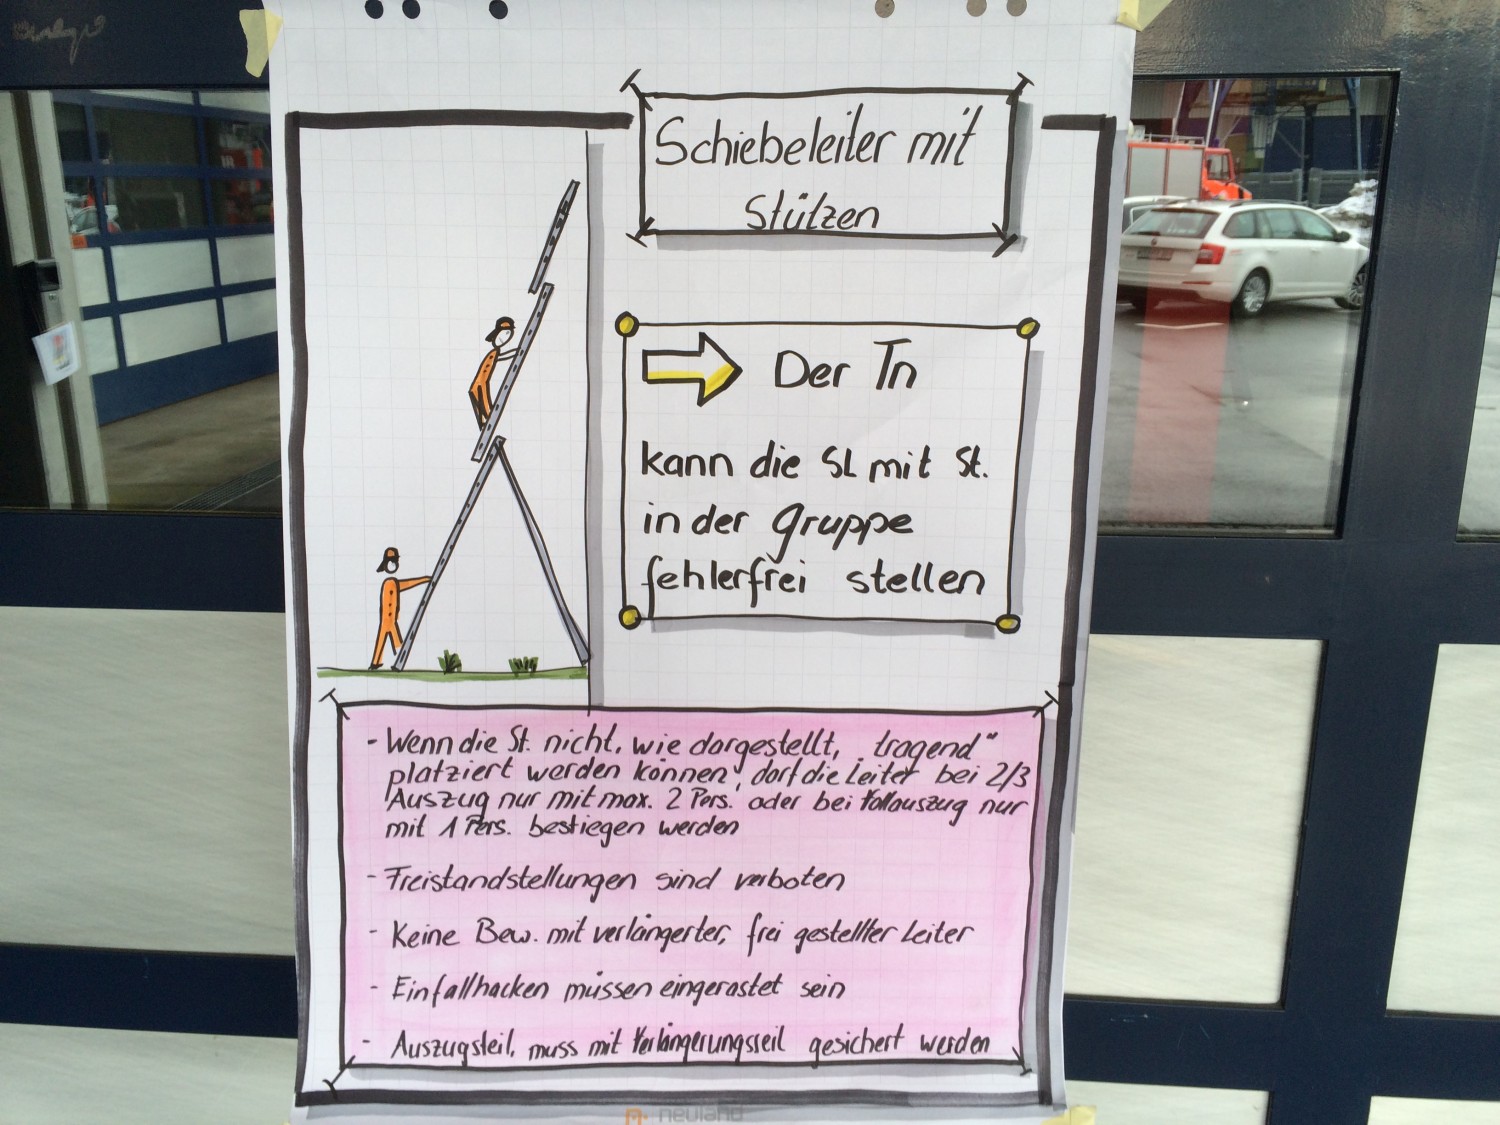 Schiebeleiter mit
Stützen
Der Tn
kann die SL mit St.
in der Gruppe
fehlerfrei stellen
- Wenn die St. nicht, wie dargestellt, „tragend"
platziert werden können, darf die Leiter bei 2/3
Auszug nur mit max. 2 Pers. oder bei Vollauszug nur
mit 1 Pers. bestiegen werden
- Freistandstellungen sind verboten
- Keine Bew. mit verlängerter, frei gestellter Leiter
- Einfallhacken müssen eingerastet sein
- Auszugsteil, muss mit Verlängerungsseil gesichert werden
neuland